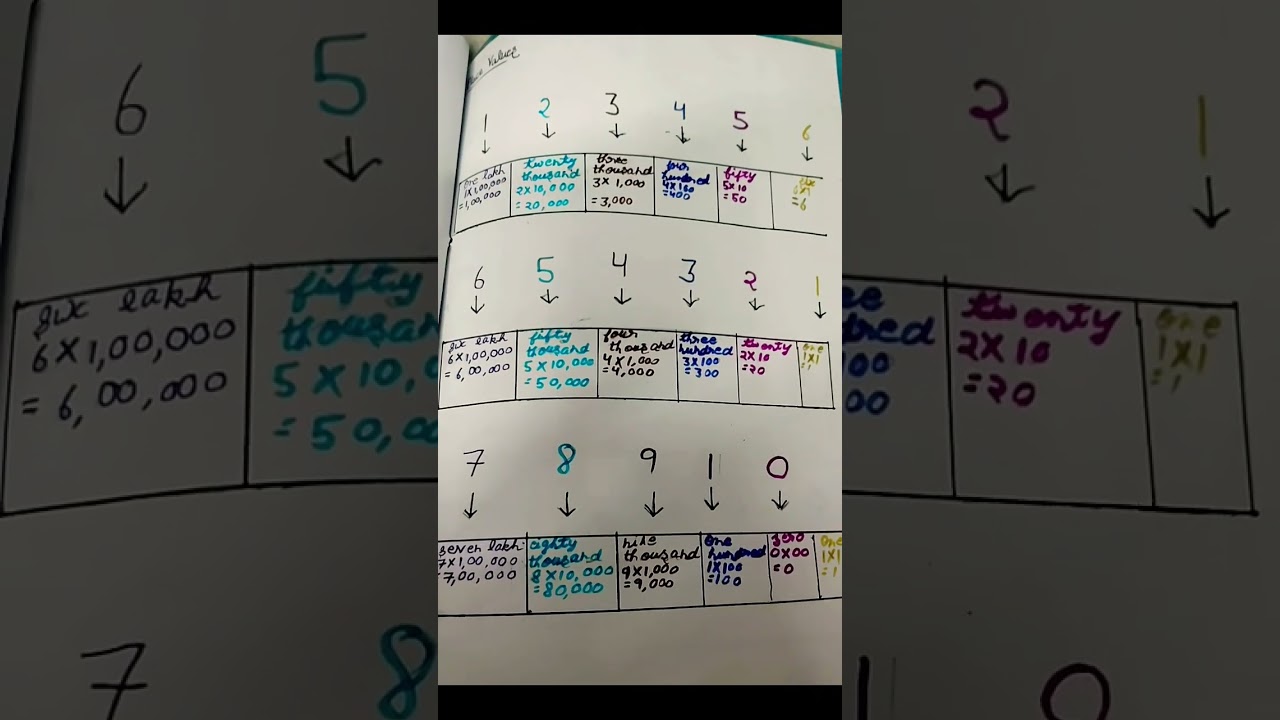 Value
1 2 3 4 5 6
one lakh
1×1,00,000
=1,00,000
twenty
thousand
2×10,000
=20,000
three
thousand
3×1,000
=3,000
four
hundred
4×100
=400
fifty
5×10
=50
six
6×1
=6
6 5 4 3 2 1
six lakh
6×1,00,000
=6,00,000
fifty
thousand
5×10,000
=50,000
four
thousand
4×1,000
=4,000
three
hundred
3×100
=300
twenty
2×10
=20
one
1×1
=1
7 8 9 1 0
seven lakh
7×1,00,000
=7,00,000
eighty
thousand
8×10,000
=80,000
nine
thousand
9×1,000
=9,000
one
hundred
1×100
=100
zero
0×00
=0
one
1×1
=1